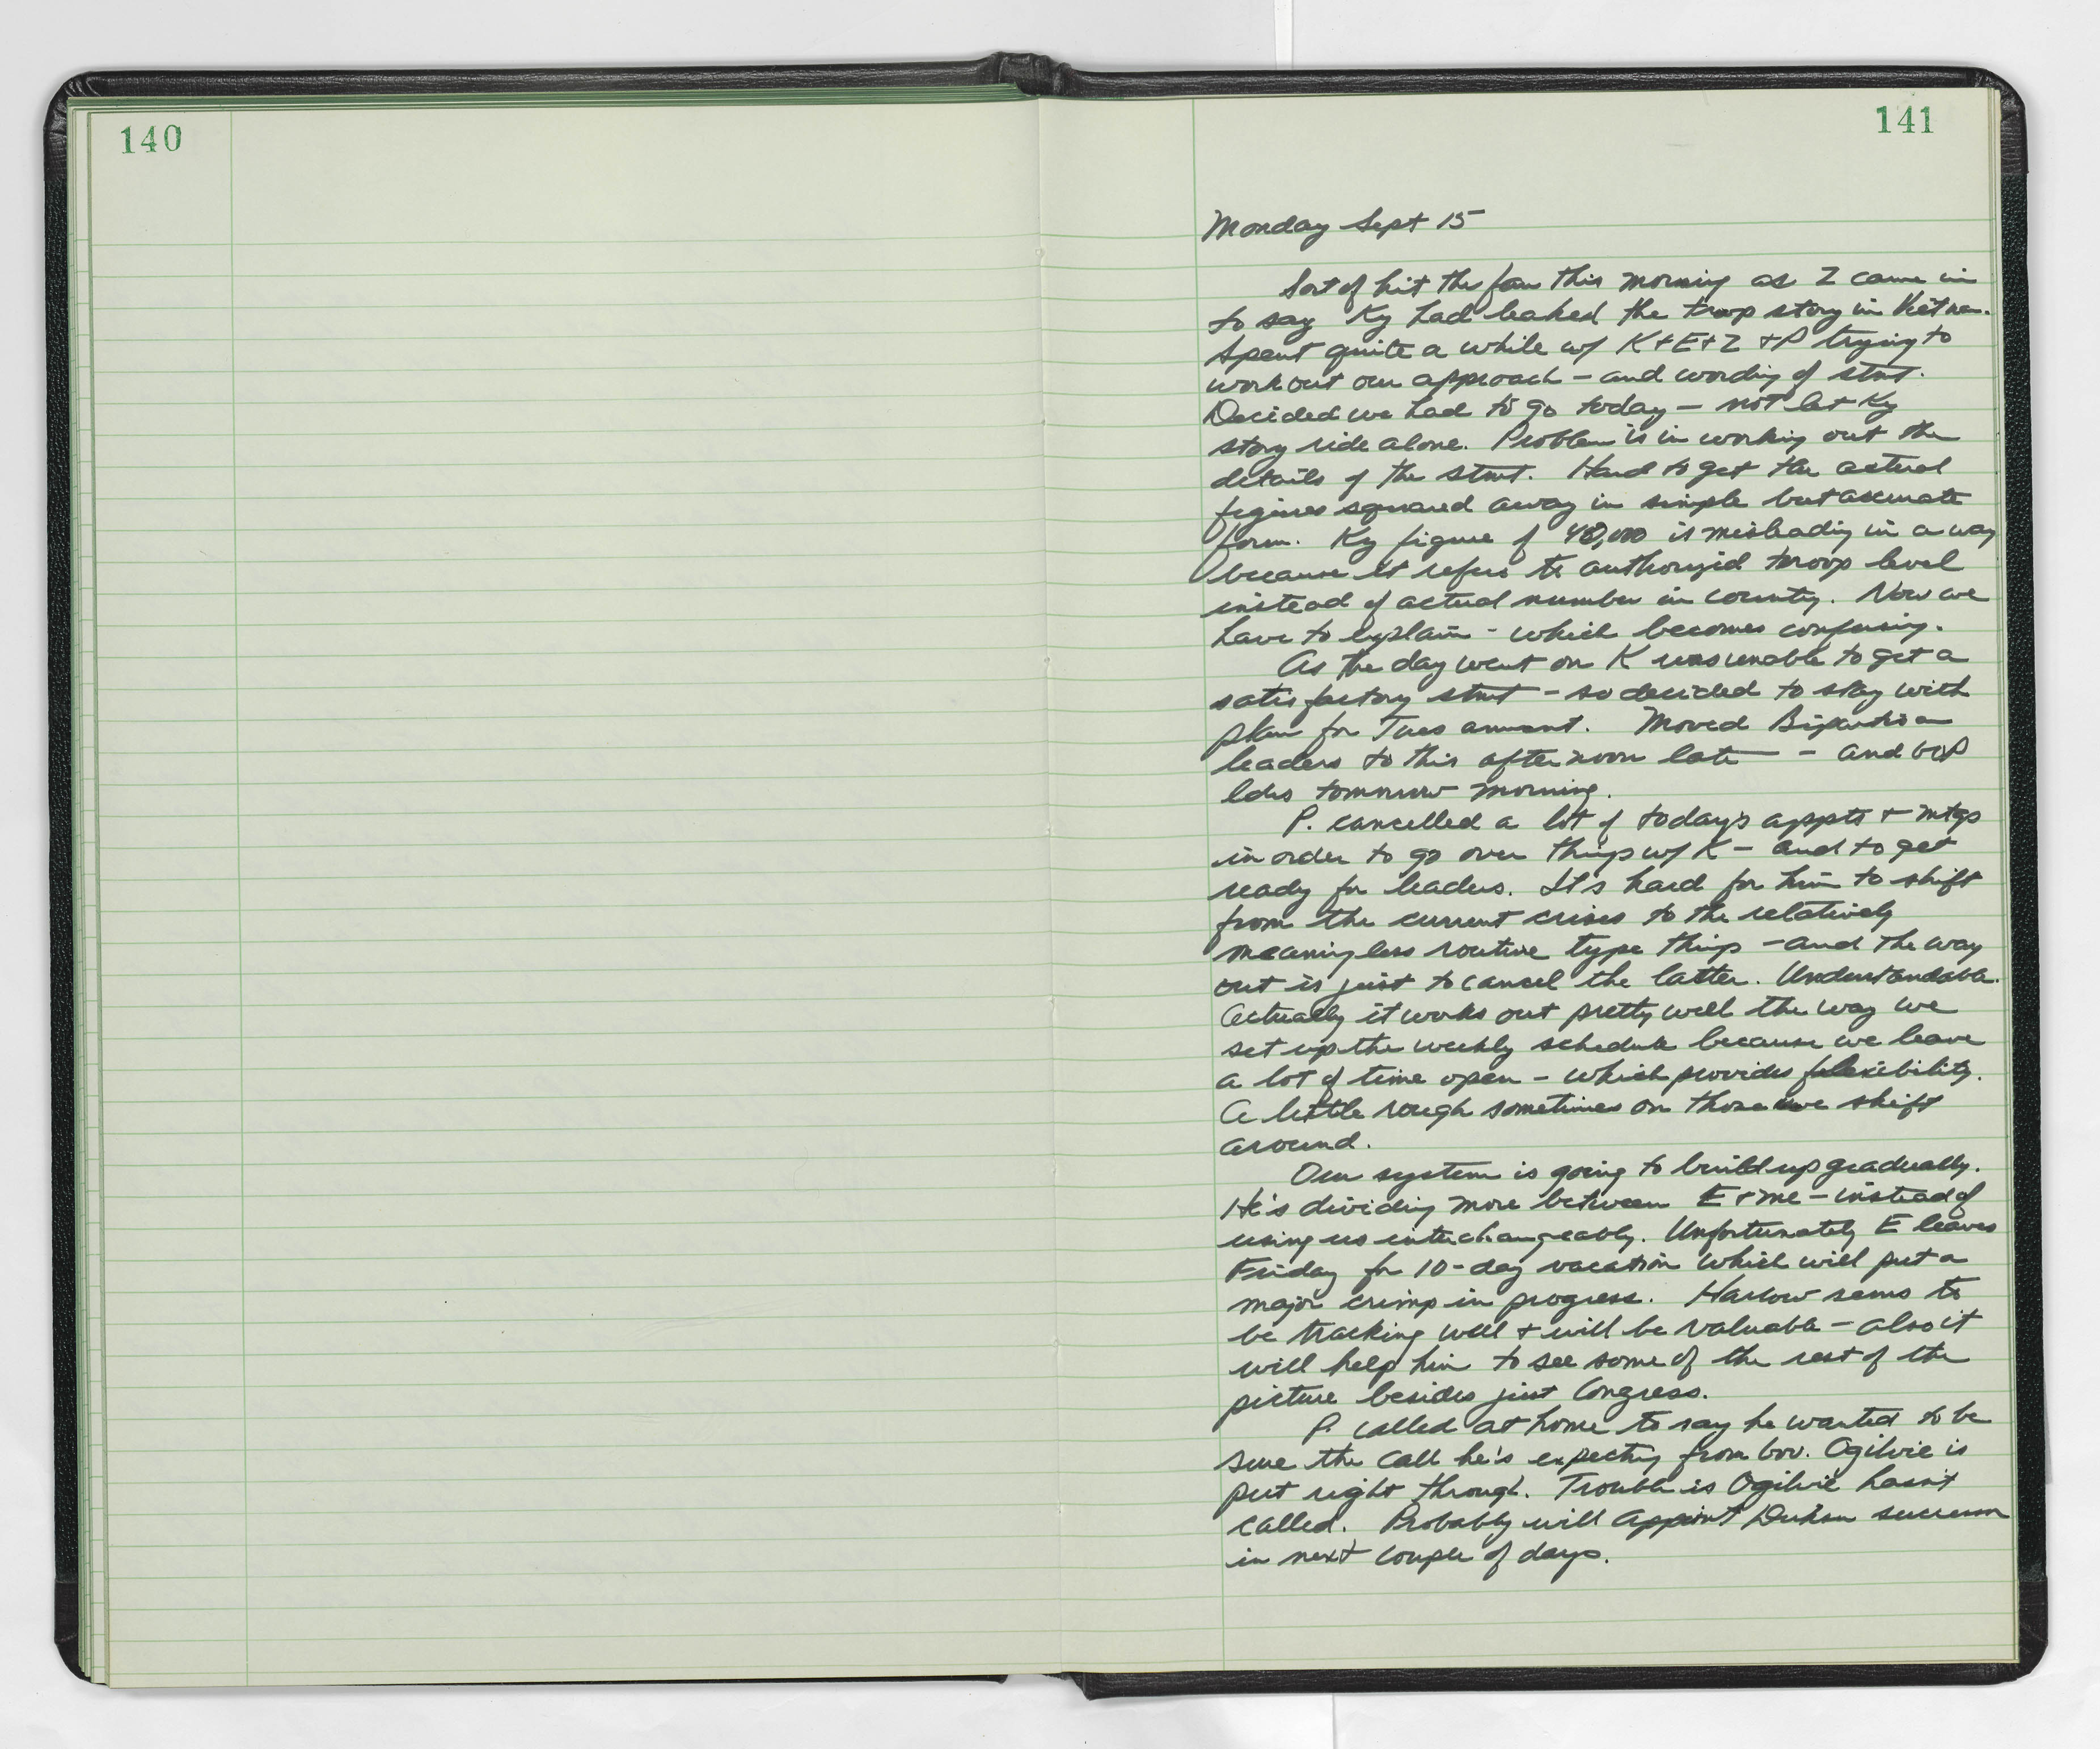 140
141
Monday Sept 15
Sort of hit the fan this morning as Z came in
to say Ky had leaked the troop story in Vietnam.
Spent quite a while w/ K+E+Z +P trying to
work out our approach – and wording of stmt.
Decided we had to go today – not let Ky
story ride alone. Problem is in working out the
details of the stmt. Hard to get the actual
figures squared away in simple but accurate
form. Ky figure of 40,000 is misleading in a way
because it refers to authorized troop level
instead of actual number in country. Now we
have to explain - which becomes confusing.
As the day went on K was unable to get a
satisfactory stmt – so decided to stay with
plan for Tues annmnt. Moved Bipartisan
leaders to this afternoon late – and GOP
ldrs tomorrow morning.
P. cancelled a lot of today's appts + mtgs
in order to go over things w/ K – and to get
ready for leaders. It's hard for him to shift
from the current crises to the relatively
meaningless routine type things – and the way
out is just to cancel the latter. Understandable.
Actually it works out pretty well the way we
set up the weekly schedule because we leave
a lot of time open – which provides flexibility.
A little rough sometimes on those we shift
around.
Our system is going to build up gradually.
He's dividing more between E + me – instead of
using us interchangeably. Unfortunately E leaves
Friday for 10-day vacation which will put a
major crimp in progress. Harlow seems to
be tracking well + will be valuable – also it
will help him to see some of the rest of the
picture besides just Congress.
P. called at home to say he wanted to be
sure the call he's expecting from Gov. Ogilvie is
put right through. Trouble is Ogilvie hasn't
called. Probably will appoint Dirksen successor
in next couple of days.